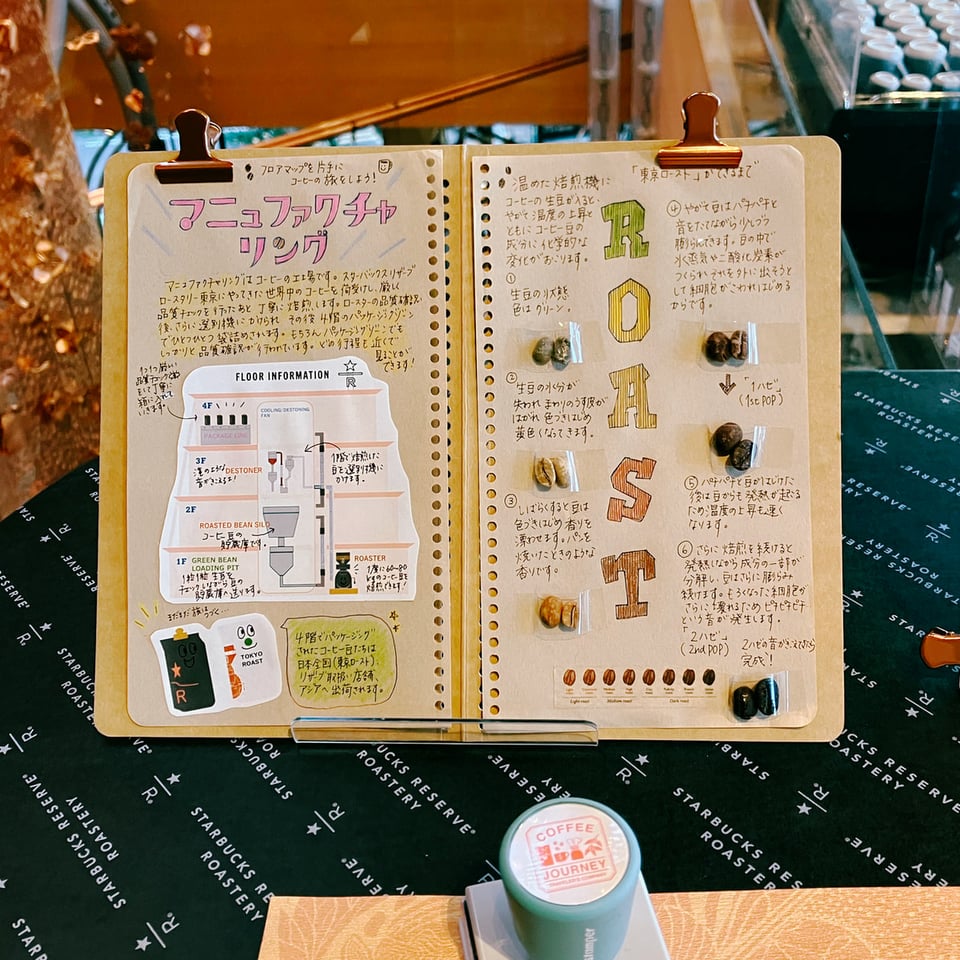 フロアマップを片手に
コーヒーの旅をしよう!
マニュファクチャ
リング
マニュファクチャリングはコーヒーの工場です。スターバックス リザーブ
ロースタリー 東京にやってきた世界中のコーヒーを荷受けし、厳しい
品質チェックを行ったあと丁寧に焙煎します。ロースターの品質確認
後、さらに選別機にかけられ、その後4階のパッケージングライン
でひとつひとつ袋詰めされます。もちろんパッケージングラインでも
しっかりと品質確認が行われています。どの行程も近くで
見ることが
できます!
品質チェック
FLOOR INFORMATION
R
4F
PACKAGE LINE
COOLING/DESTONING
FAN
3F
DESTONER
音がきこえるよ!
1階で焙煎した
豆を選別機に
かけます。
2F
ROASTED BEAN SILO
コーヒー豆の
貯蔵庫です。
1F GREEN BEAN
LOADING PIT
チェックしながら豆の
貯蔵庫へ送ります。
ROASTER
1度に60~80
kgのコーヒー豆を
焙煎できます!
まだまだ旅はつづく…
R
TOKYO
ROAST
4階でパッケージング
されたコーヒー豆たちは
日本全国(東京ロースト)、
リザーブ取扱い店舗、
アジアへ出荷されます。
「東京ロースト」ができるまで
温めた焙煎機に
コーヒーの生豆が入ると、
やがて温度の上昇と
ともにコーヒー豆の
成分に化学的な
変化がおこります。
①
生豆の状態
色はグリーン。
②
生豆の水分が
失われ まわりのうす皮が
はがれ 色づきはじめ
黄色くなってきます。
③
しばらくすると豆は
色づきはじめ 香りを
漂わせます。パンを
焼いたときのような
香りです。
ROAST
④ やがて豆はパチパチと
音をたてながら少しづつ
膨らんできます。豆の中で
水蒸気や二酸化炭素が
つくられ それを外に出そうと
して細胞がこわれはじめる
からです。
「1ハゼ」
(1st POP)
⑤ パチパチと豆がはじけた
後は豆からも発熱が起こる
ため温度の上昇も速く
なります。
⑥ さらに焙煎を続けると
発熱しながら成分の一部が
分解し、豆はさらに膨らみ
続けます。もろくなった細胞が
さらに壊れるため ピチピチ
という音が発生します。
「2ハゼ」
(2nd POP)
2ハゼの音がきこえてきたら
完成!
Light roast
Medium roast
Dark roast
STARBUCKS RESERVE
ROASTERY
COFFEE
JOURNEY